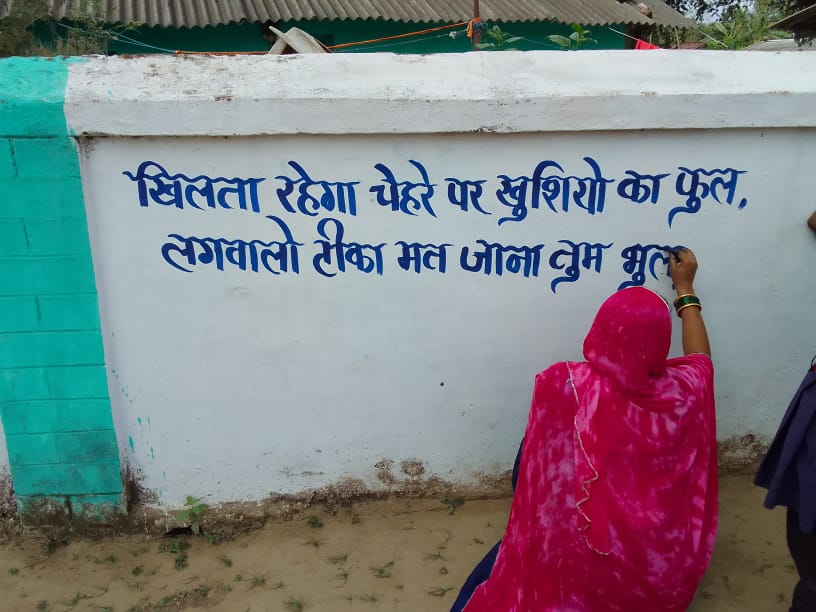 खिलता रहेगा चेहरे पर खुशियो का फुल,
लगवालो टीका मत जाना तुम भुल